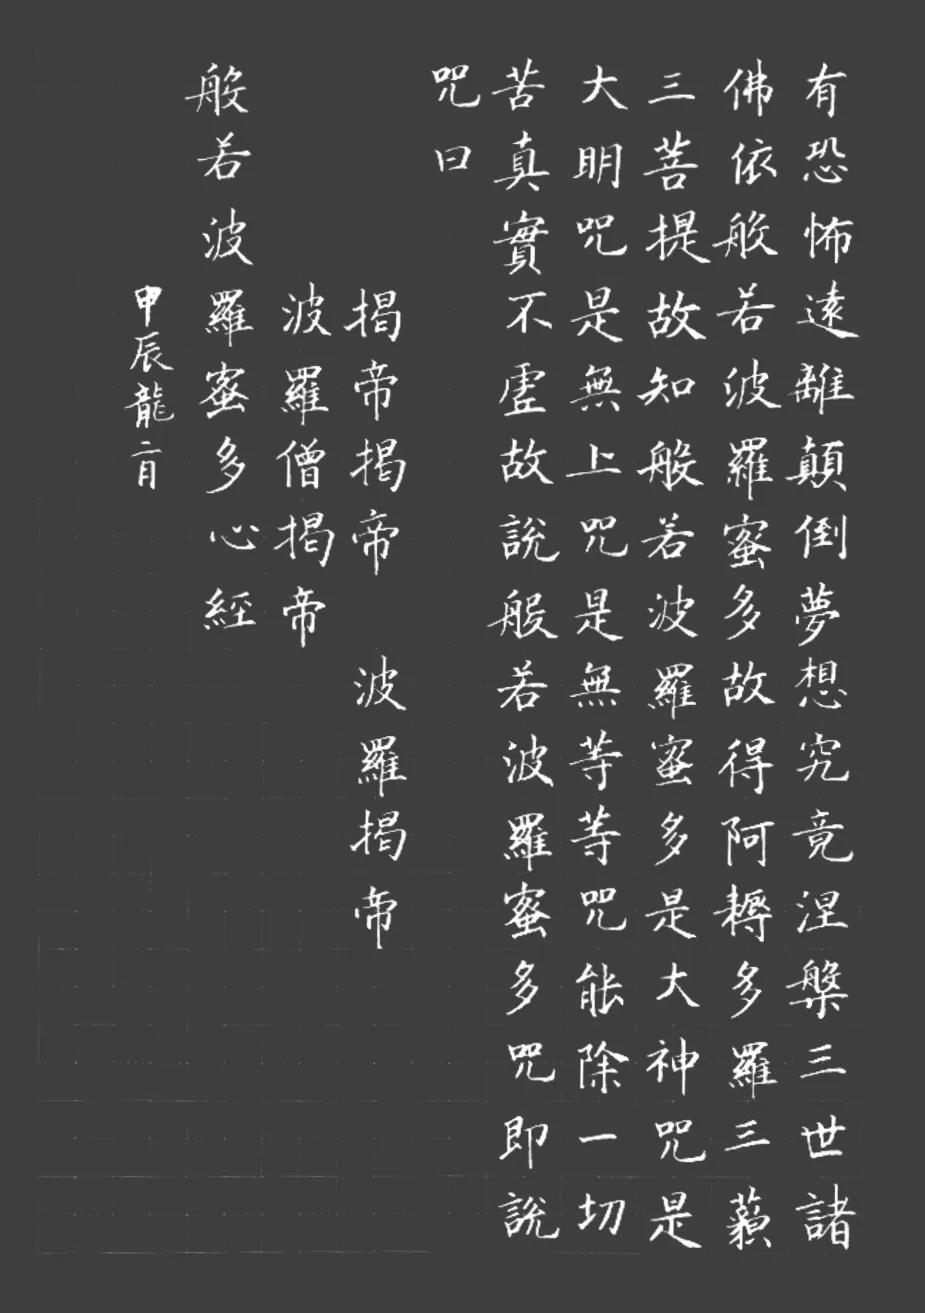 有恐怖遠離顛倒夢想究竟涅槃三世諸
佛依般若波羅蜜多故得阿耨多羅三藐
三菩提故知般若波羅蜜多是大神咒是
大明咒是無上咒是無等等咒能除一切
苦真實不虛故說般若波羅蜜多咒即說
咒曰
揭帝揭帝 波羅揭帝
波羅僧揭帝
般若波羅蜜多心經
甲辰龍二月